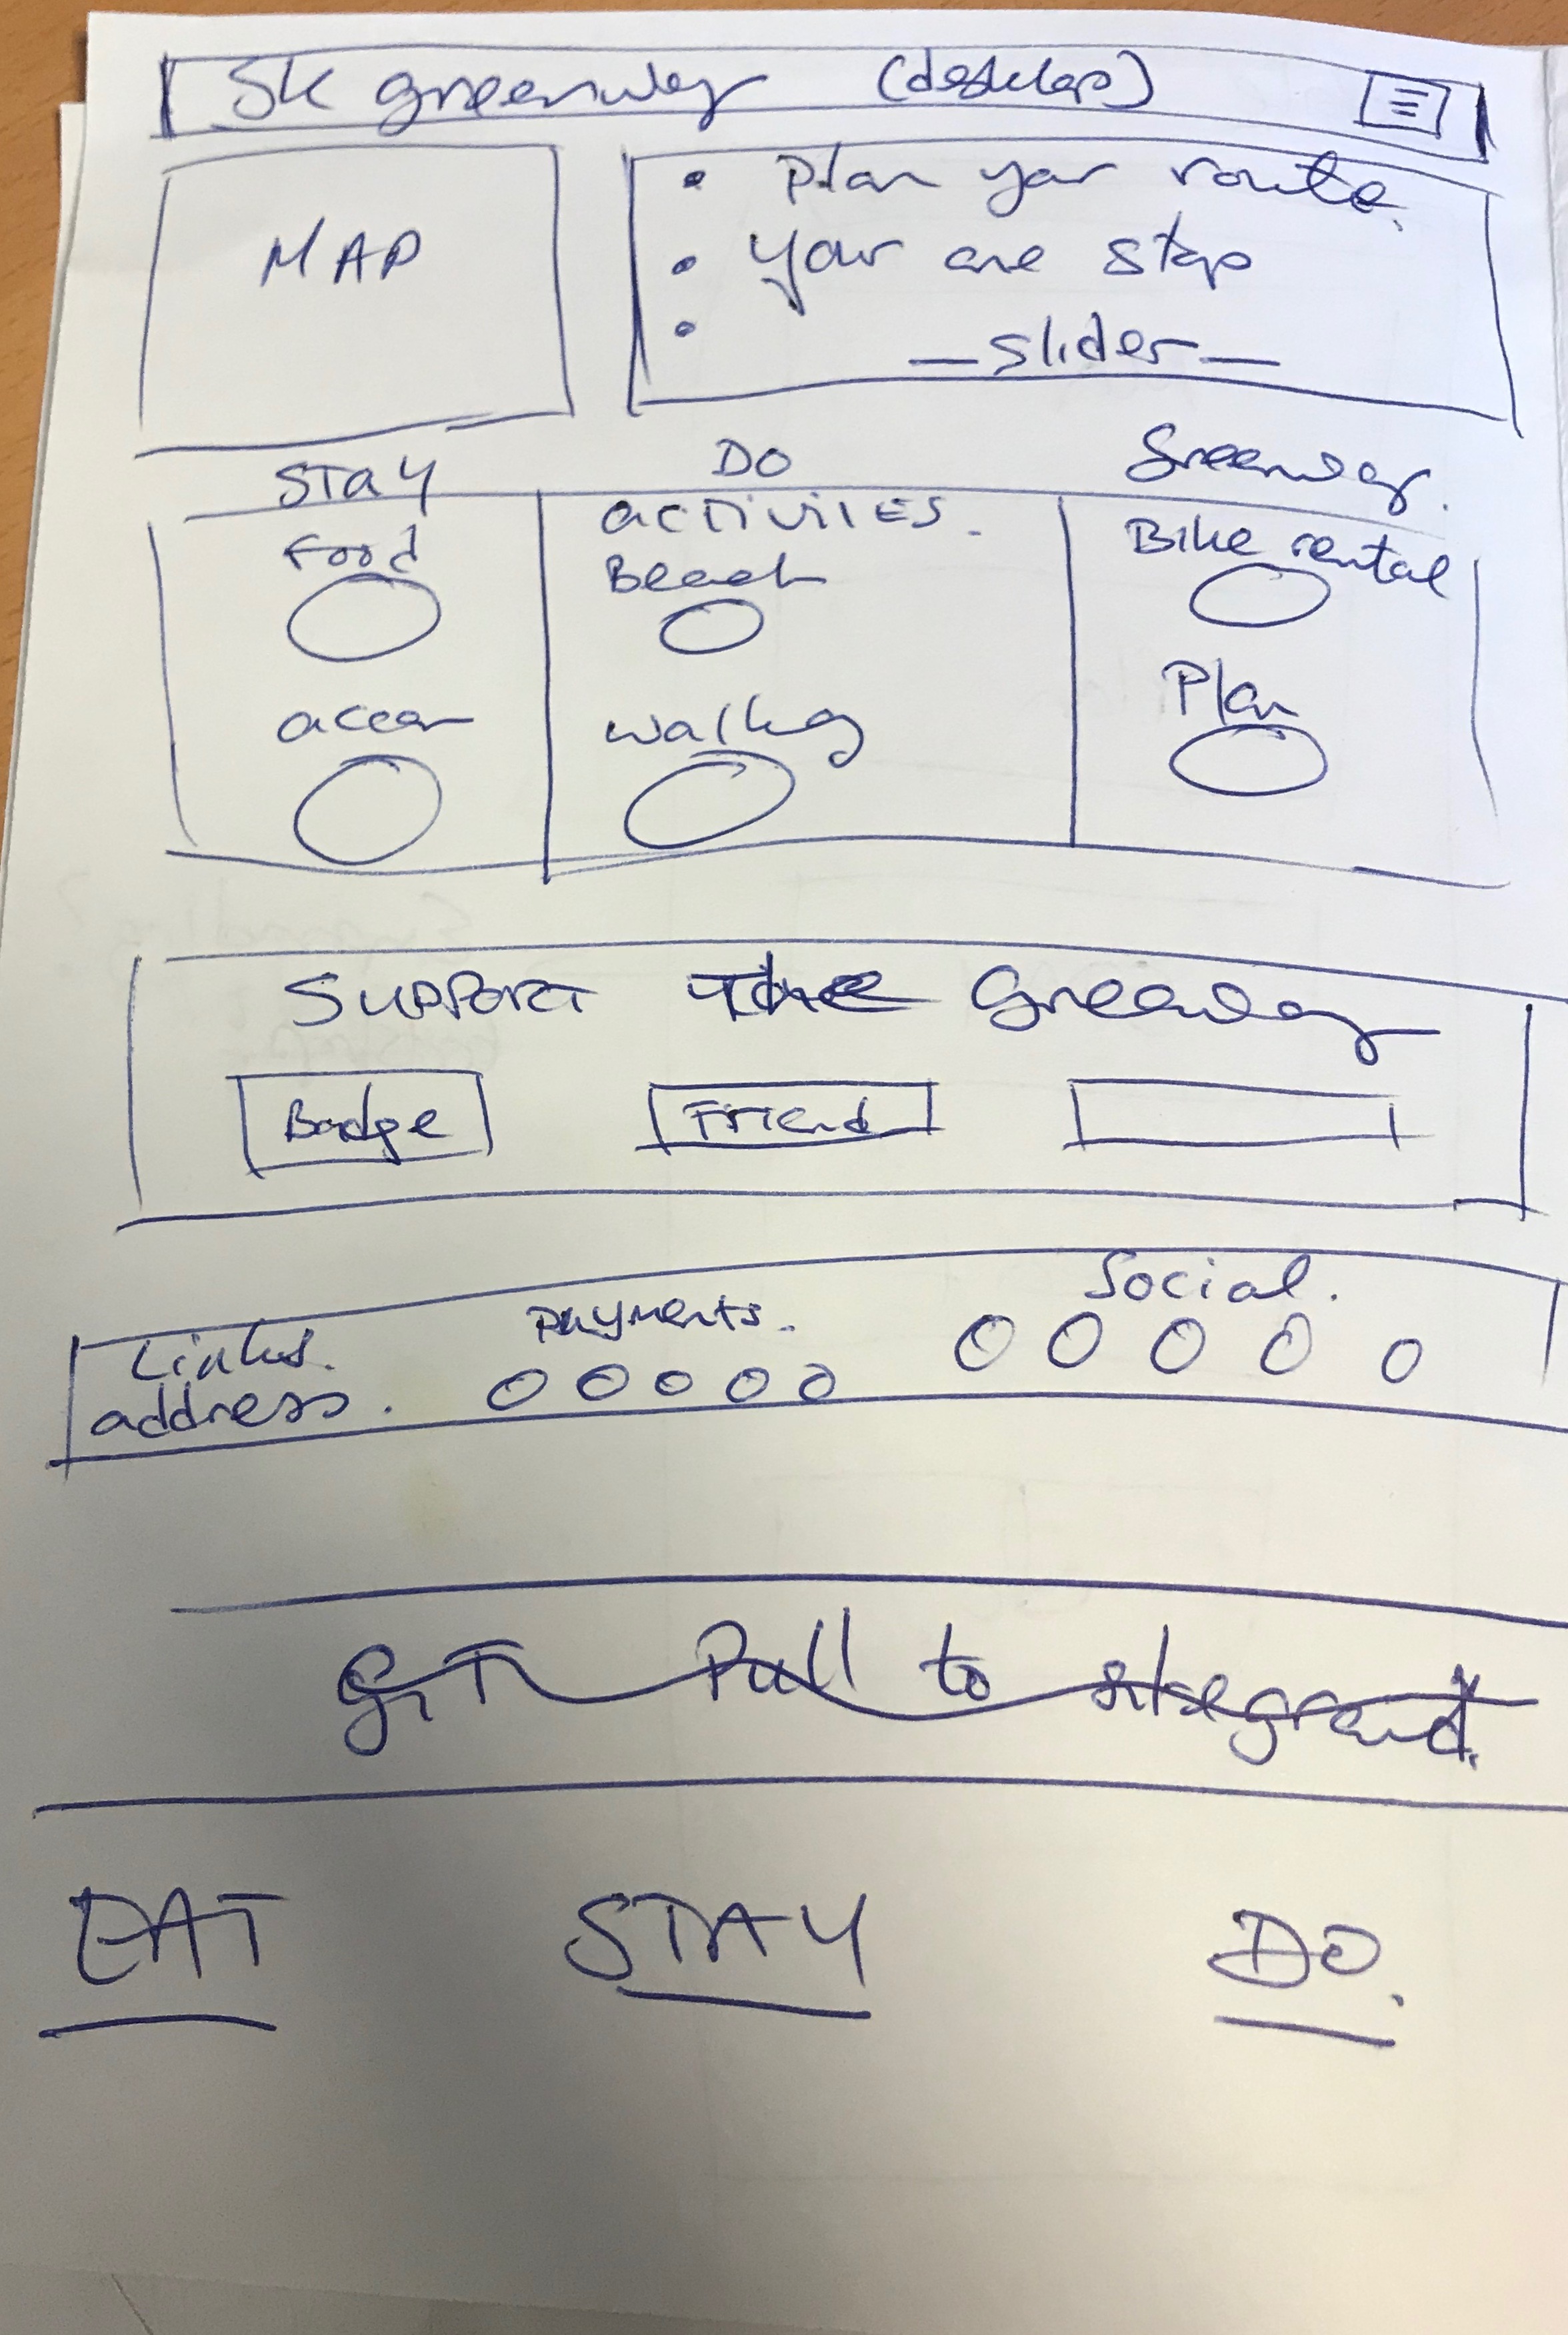 SK greenway (desktop)
MAP
• Plan your route.
• Your one stop
•
— slider —
STAY DO Greenway.
Food
accom
activities.
Beach
walking
Bike rental
Plan
SUPPORT The Greenway
Badge Friend
Links.
address.
Payments.
Social.
GIT Pull to
EAT STAY DO.